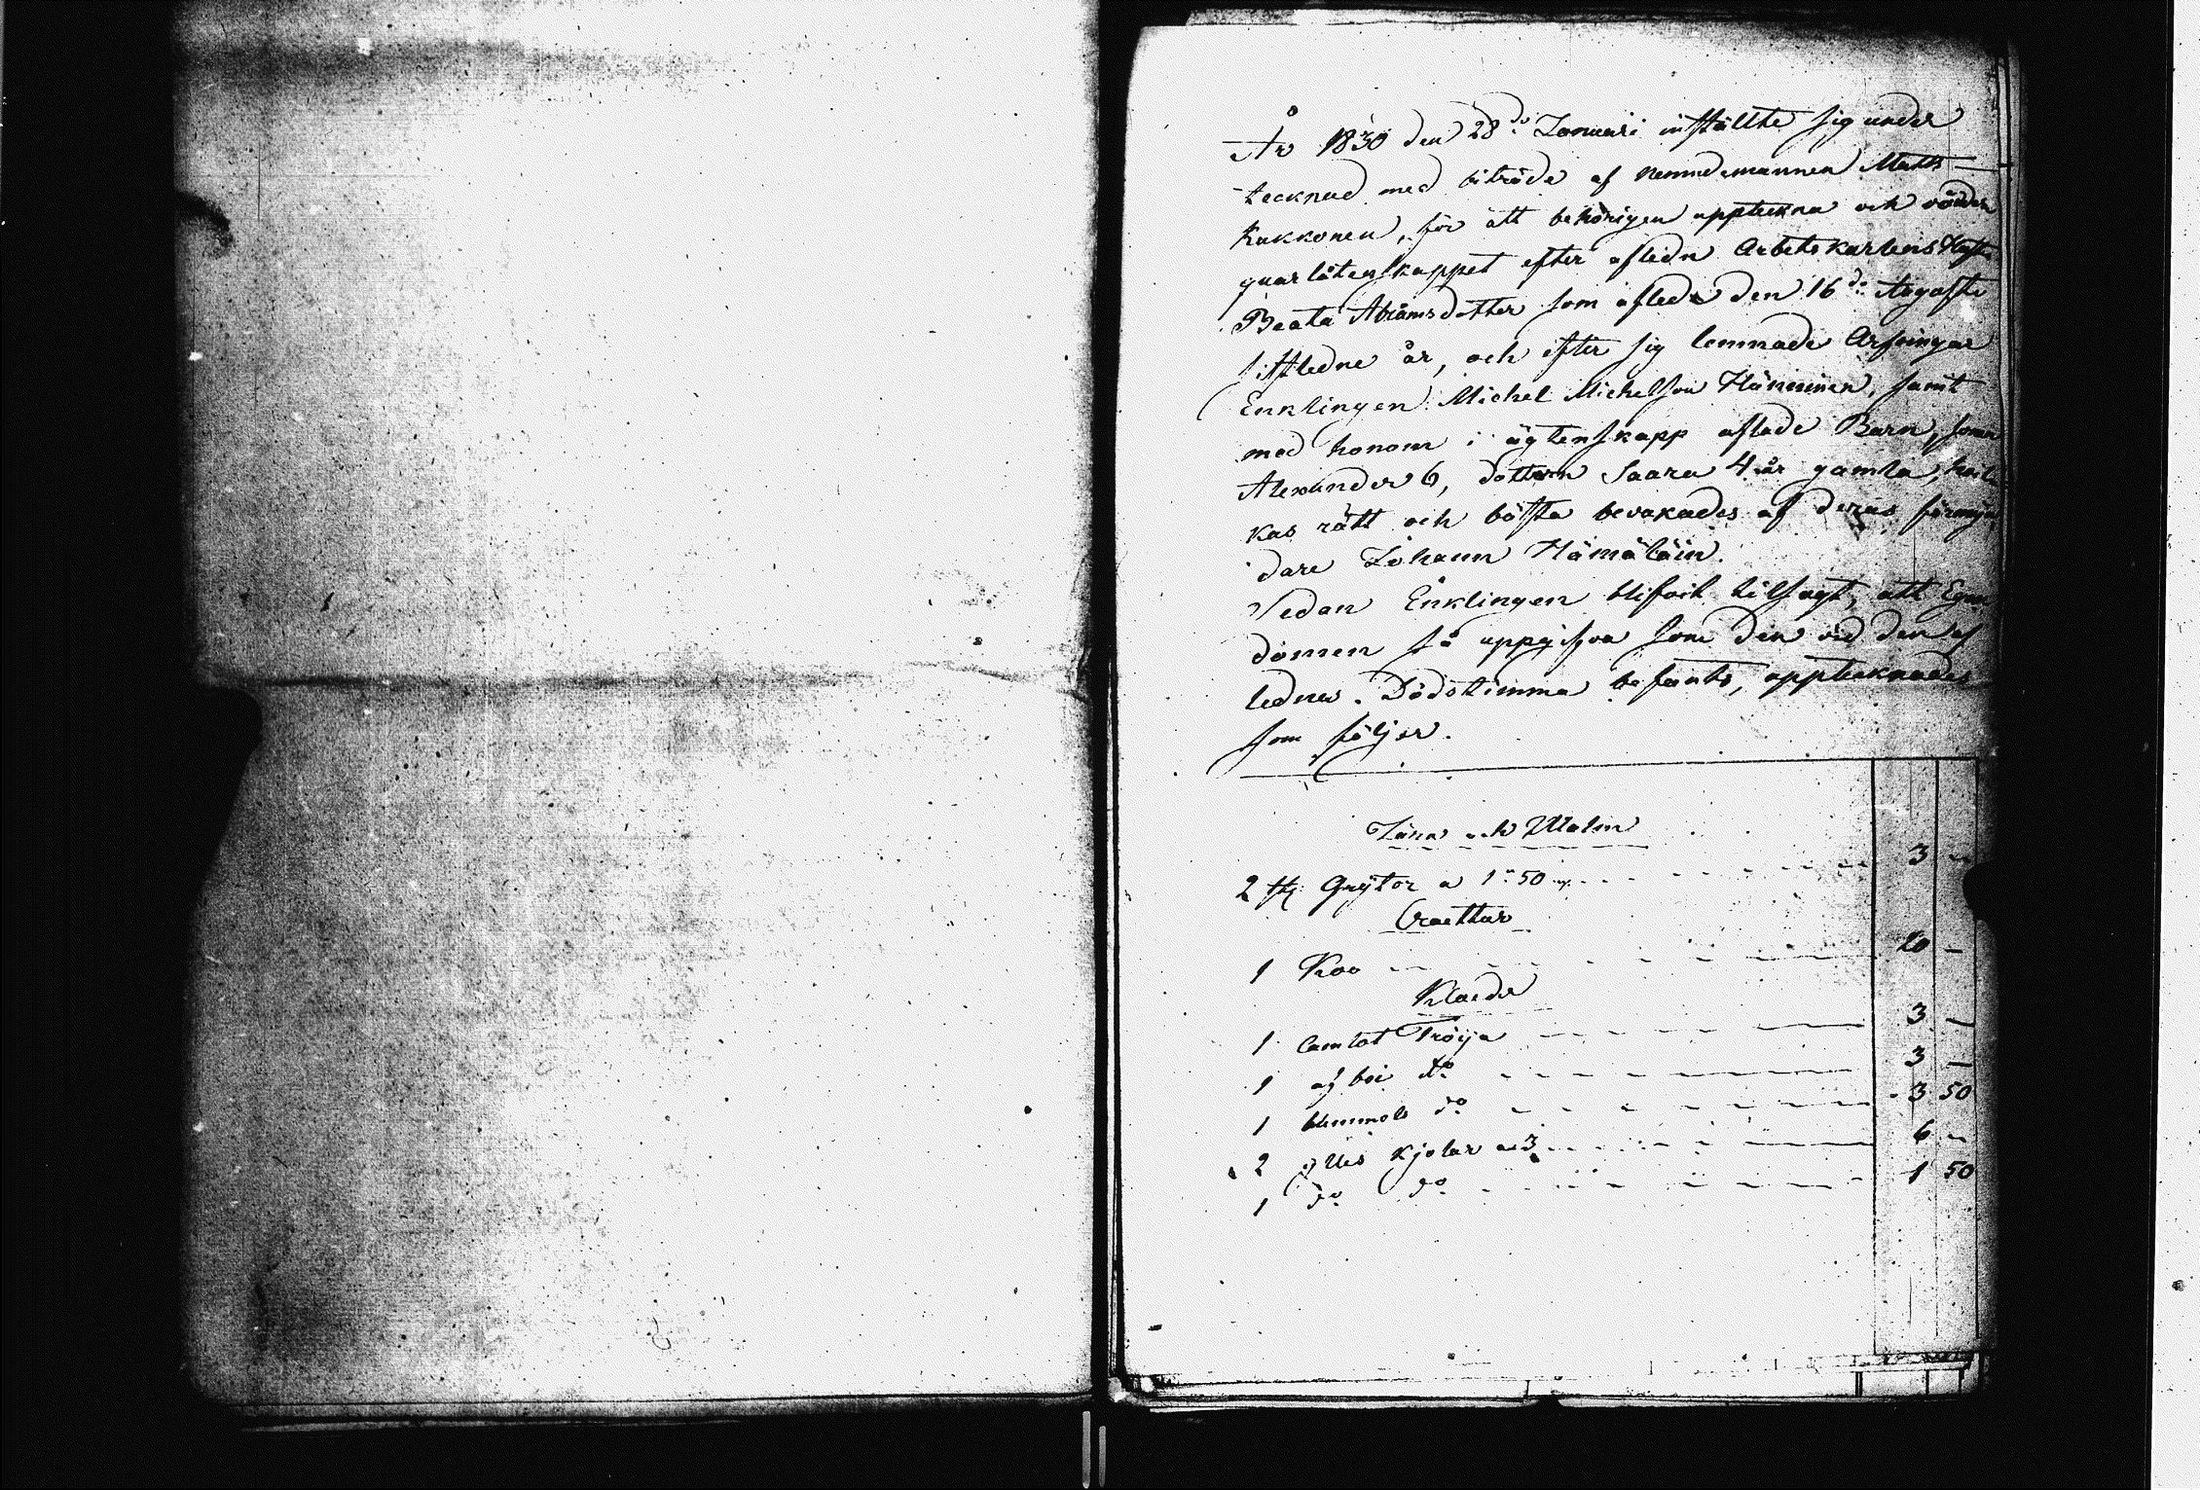 År 1830 den 28de Januari inställte sig under
tecknad med biträde af Nemndemannen Matts
Kukkonen, för att behörigen uppteckna och värdera
quarlåtenskappet efter afledn Arbetskarlens Hust
Beata Abramsdotter som afled den 16de Augusti
sistledne år, och efter sig lemnade Arfvingar
Enklingen Michel Michelson Hänninen, samt
med honom i ägtenskapp aflade Barn, sonen
Alexander 6, dottern Saara 4 år gamla, hvil
kas rätt och bästa bevakades af deras förmyn
dare Johann Hämäläin.
Sedan Enklingen blifvit tilsagt, att Egen
domen så uppgifva som den vid den af
lednes Dödstimma befants, upptecknades
som följer.
Järn och Malm
2 st Grytor a 1 50 - 3 -
Creattur
1 Koo - 10 -
Klaeder
1 Camlot Tröija - 3 -
1 af boi do - 3 -
1 do - 3 50
2 Kjolar a 3 - 6 -
1 do do - 1 50